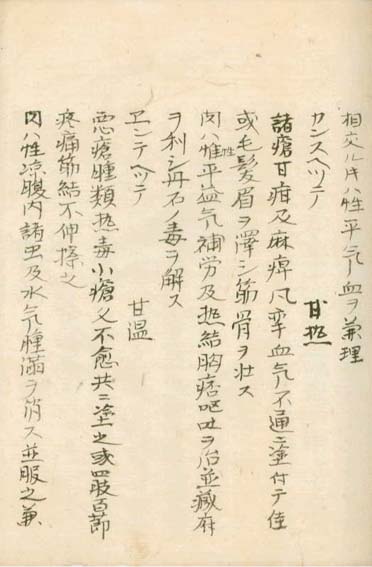 相交ル片ハ性平気血ヲ兼理
カンスヘツテ　甘热
諸瘡甘疳及麻痺凡牽血气不通ニ塗付テ佳
或毛髪眉ヲ澤シ筋骨ヲ壮ス
肉ハ性平益气補労及热結胸痞呕吐ヲ治並藏府
ヲ利シ丹石ノ毒ヲ解ス
ヱンテヘツテ　甘温
悪瘡腫類热毒小瘡久不愈共ニ塗之或四肢百節
疼痛筋結不伸搽之
肉ハ性凉腹内諸虫及水气腫満ヲ消ス並服之兼